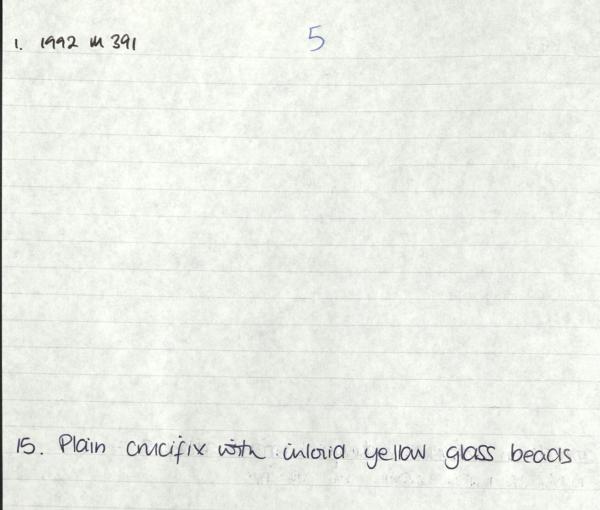 1. 1992 M 391
5
15. Plain crucifix with inlaid yellow glass beads